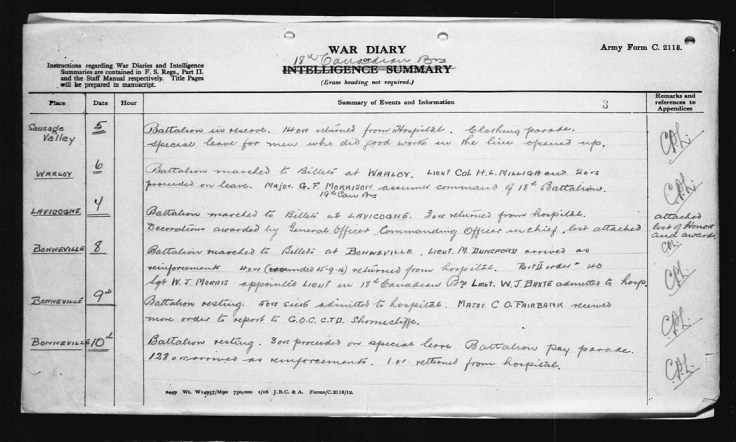 WAR DIARY
18th Canadian Bn
or
INTELLIGENCE SUMMARY
(Erase heading not required.)
Army Form C. 2118.
Instructions regarding War Diaries and Intelligence
Summaries are contained in F. S. Regs., Part II.
and the Staff Manual respectively. Title Pages
will be prepared in manuscript.
Place Date Hour Summary of Events and Information 3 Remarks and
references to
Appendices
Sausage
Valley 5 Battalion in reserve. 14 ors returned from Hospital. Clothing parade.
special leave for men who did good work in the line opened up.
WARLOY 6 Battalion marched to Billets at WARLOY. LIEUT COL H.L. MILLIGAN and 20rs
proceeded on leave. MAJOR. G.F. MORRISON assumed command of 18th Battalion.
19th Can Bn
LAVICOGNE Battalion marched to Billets at LAVICOGNE. 3 ors returned from hospital.
Decorations awarded by General Officer Commanding Officer in chief, list attached
attached
list of Honors
and awards
BONNEVILLE 8 Battalion marched to Billets at BONNEVILLE. LIEUT. M. DUNSFORD arrived as
reinforcements 4 ors (wounded 15-9-16) returned from hospital. Part II order 40
Sgt W. J. MORRIS appointed LIEUT in 18th Canadian Bn LIEUT. W. J. BAXTE admitted to hosp.
BONNEVILLE 9th Battalion resting. 5 ors sick admitted to hospital. MAJOR C O. FAIRBANK received
more order to report to G.O.C. C.T.D. Shorncliffe.
BONNEVILLE 10th Battalion resting. 3 ors proceeded on special leave Battalion pay parade.
128 ors arrived as reinforcements. 1 or returned from hospital.
2449 Wt. W14957/M90 750,000 1/16 J.B.C. & A. Forms/C.2118/12.